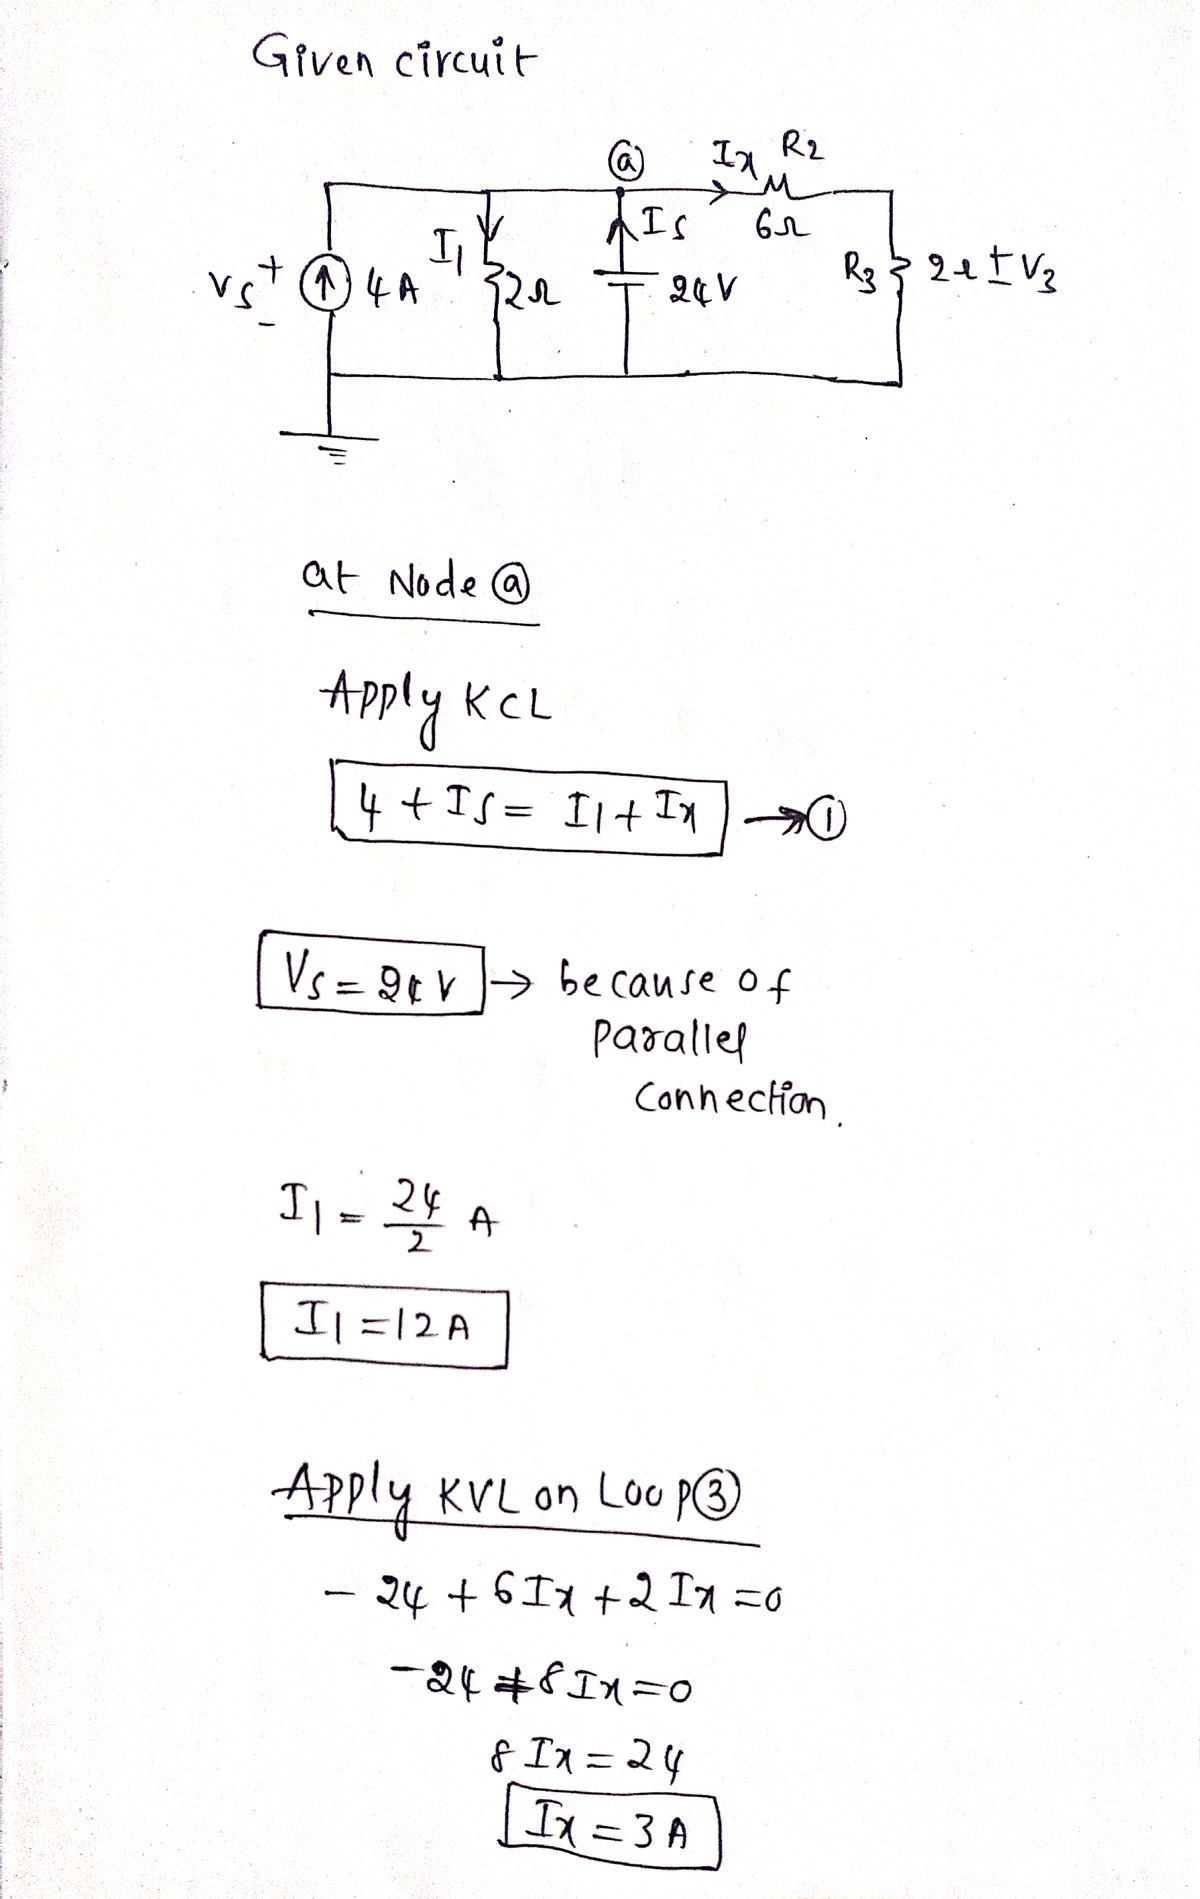 Given circuit
ⓐ Ix R2
I1 Is 6Ω
Vs + - 4A 2Ω 24V R3 2Ω ± V3
at Node ⓐ
Apply KCL
4 + Is = I1 + Ix → ①
Vs = 24V → because of
parallel
Connection.
I1 = 24/2 A
I1 = 12A
Apply KVL on Loop ③
- 24 + 6Ix + 2Ix = 0
-24 + 8Ix = 0
8Ix = 24
Ix = 3A